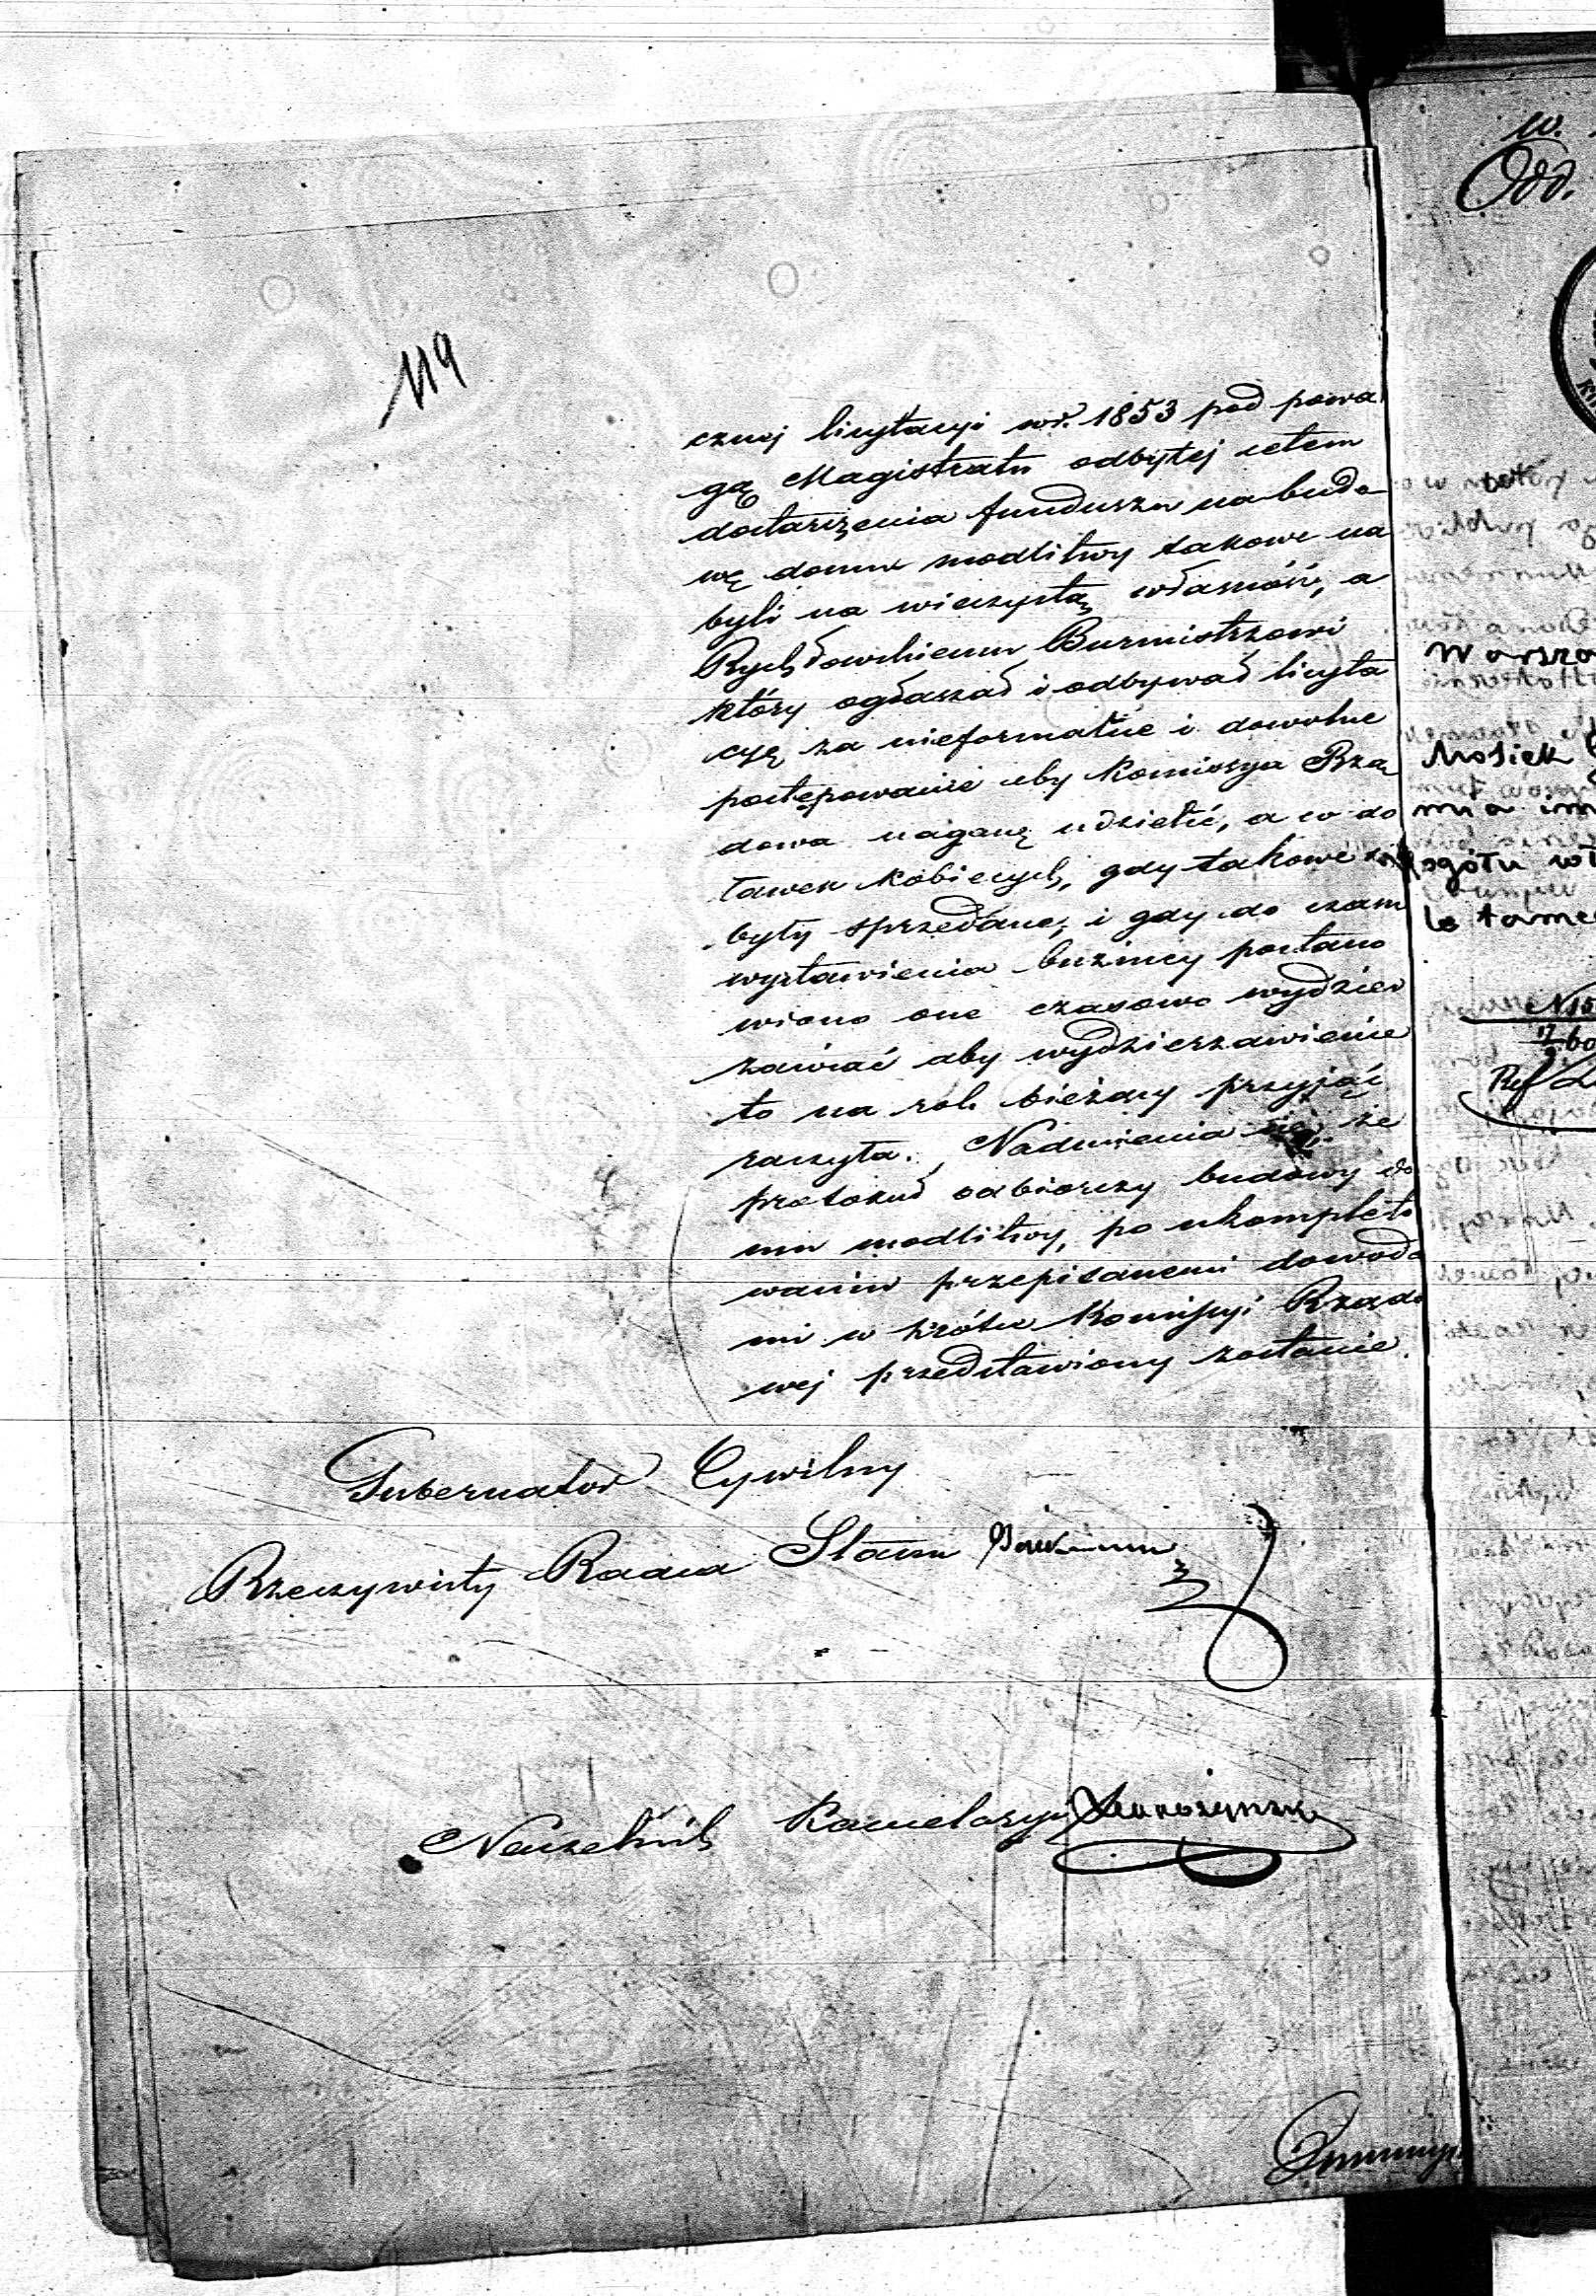 119
cznej licytacyi w r. 1853 pod powa
gą Magistratu odbytej celem
dostarczenia funduszu na budo-
wę domu modlitwy takowe na
byli na wieczystą własność, a
Rychłowskiemu Burmistrzowi
który ogłaszał i odbywał licyta
cyę za nieformalne i dowolne
postępowanie aby Kommissya Rzą
dowa naganę udzielić, a co do
ławek kobiecych, gdy takowe nie
były sprzedane, i gdy do czasu
wystawienia bużnicy postano
wiono one czasowo wydzier
żawiać aby wydzierżawienie
to na rok bieżący przyjąć
raczyła. Nadmienia się że
protokuł odbiorczy budowy do
mu modlitwy, po ukompleto
waniu przepisanemi dowoda
mi w krótce Kommissyi Rządo
wej przedstawiony zostanie.
Gubernator Cywilny
Rzeczywisty Radca Stanu
Naczelnik Kancelaryi
w.
Odd.
Warsza
Mosiek
mia im
ogółu wł
le tame